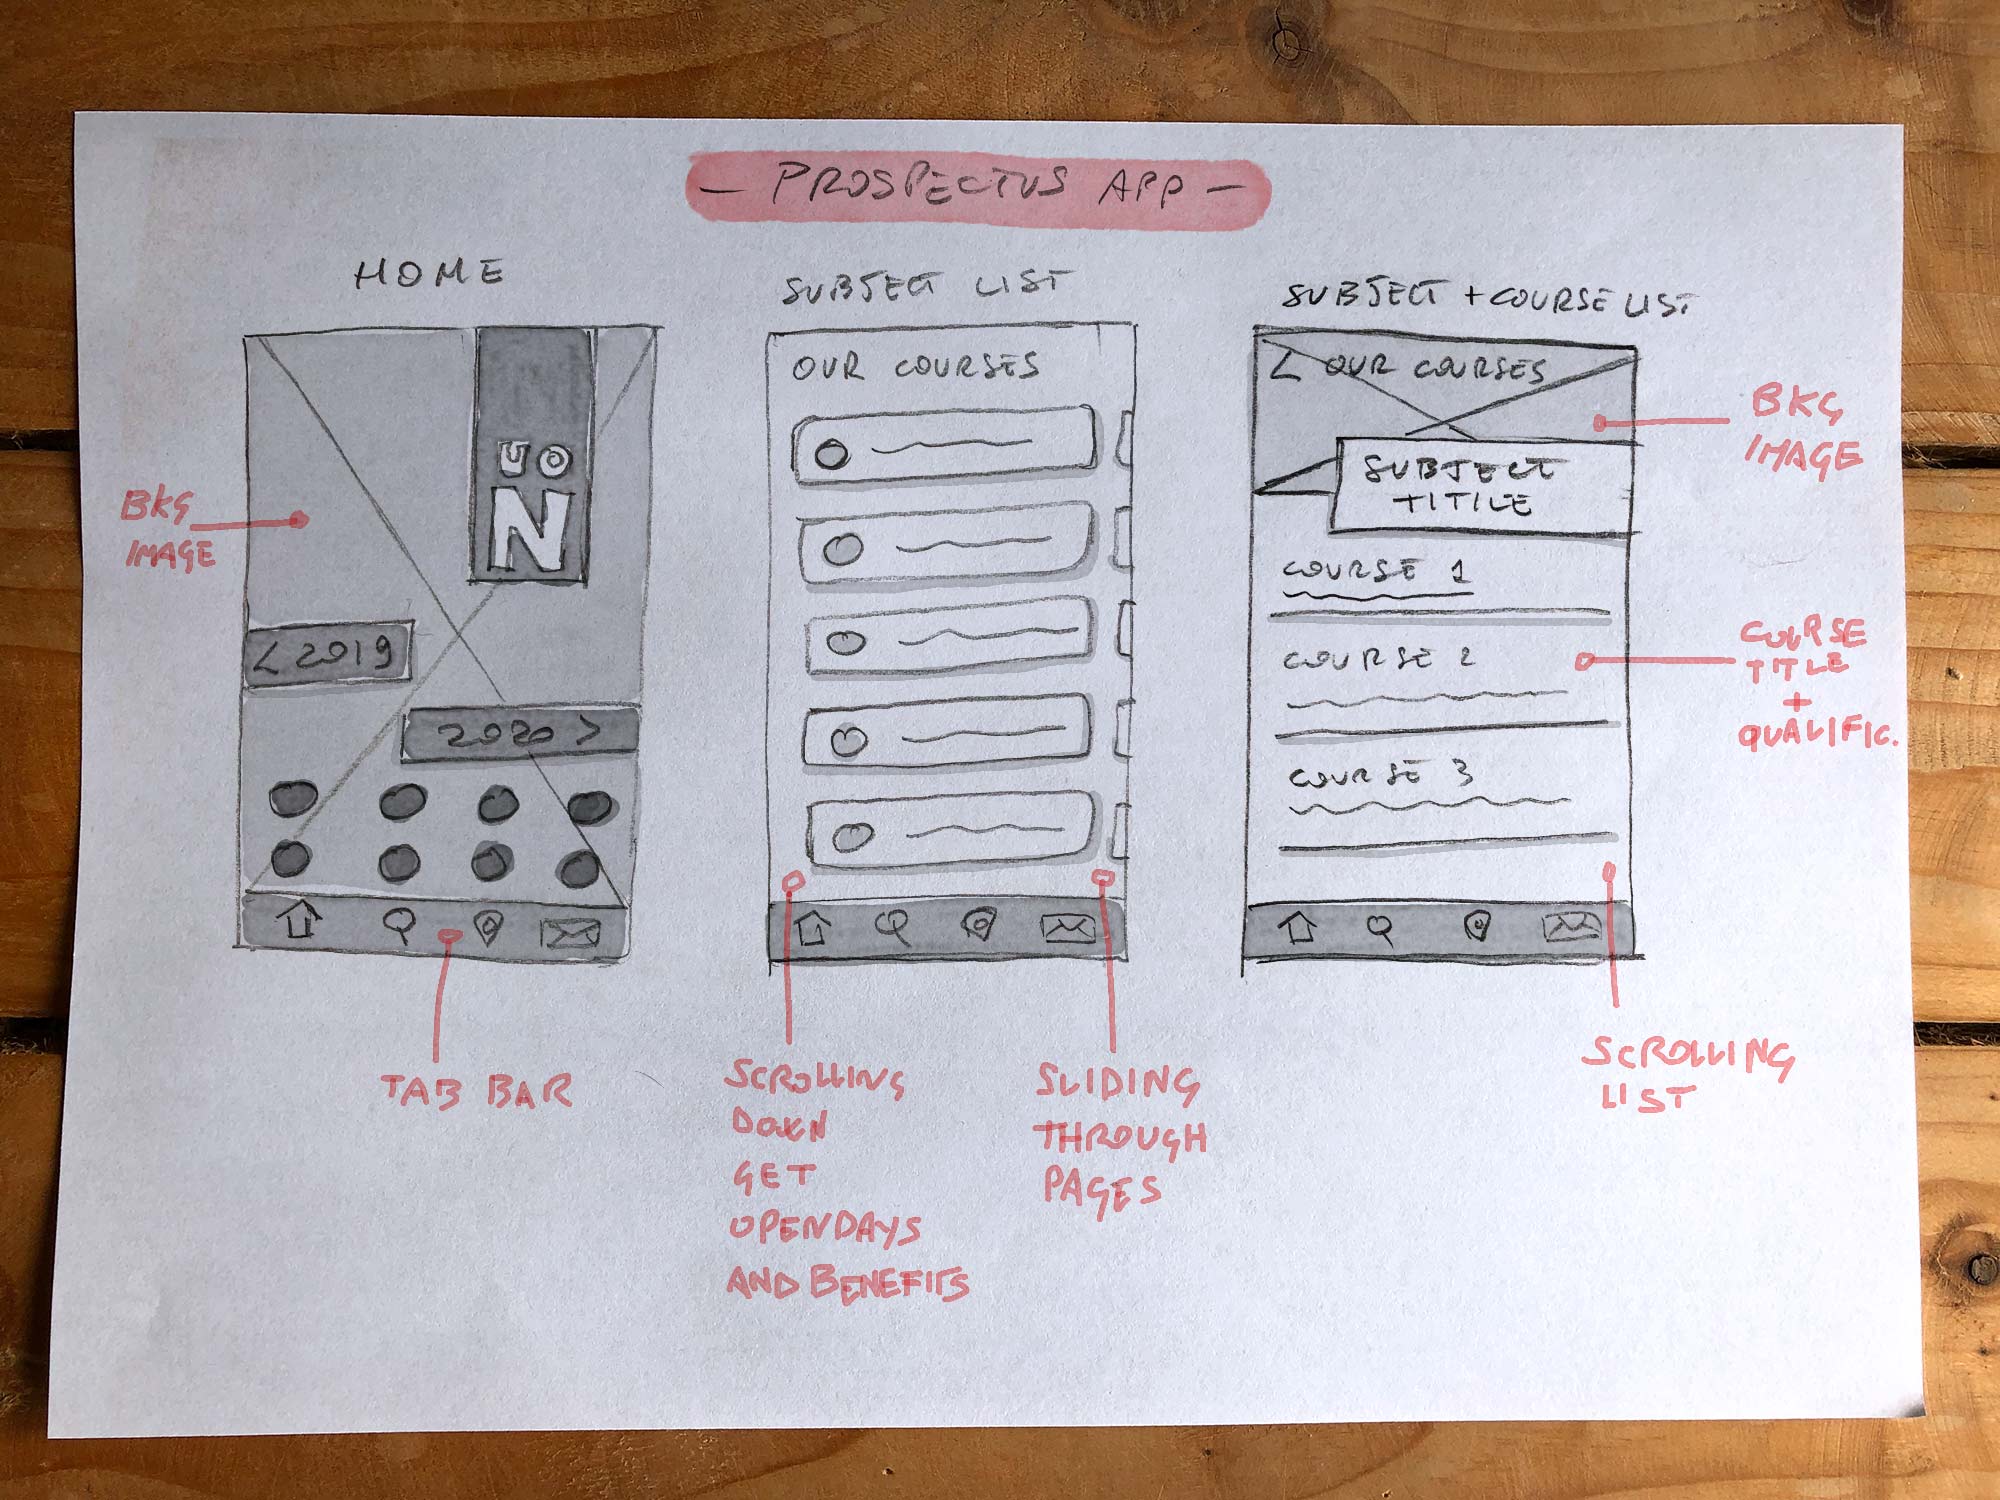 — PROSPECTUS APP —
HOME
UO
N
< 2019
2020 >
BKG
IMAGE
TAB BAR
SUBJECT LIST
OUR COURSES
SCROLLING
DOWN
GET
OPENDAYS
AND BENEFITS
SLIDING
THROUGH
PAGES
SUBJECT + COURSE LIST
< OUR COURSES
SUBJECT
TITILE
COURSE 1
COURSE 2
COURSE 3
BKG
IMAGE
COURSE
TITLE
+
QUALIFIC.
SCROLLING
LIST